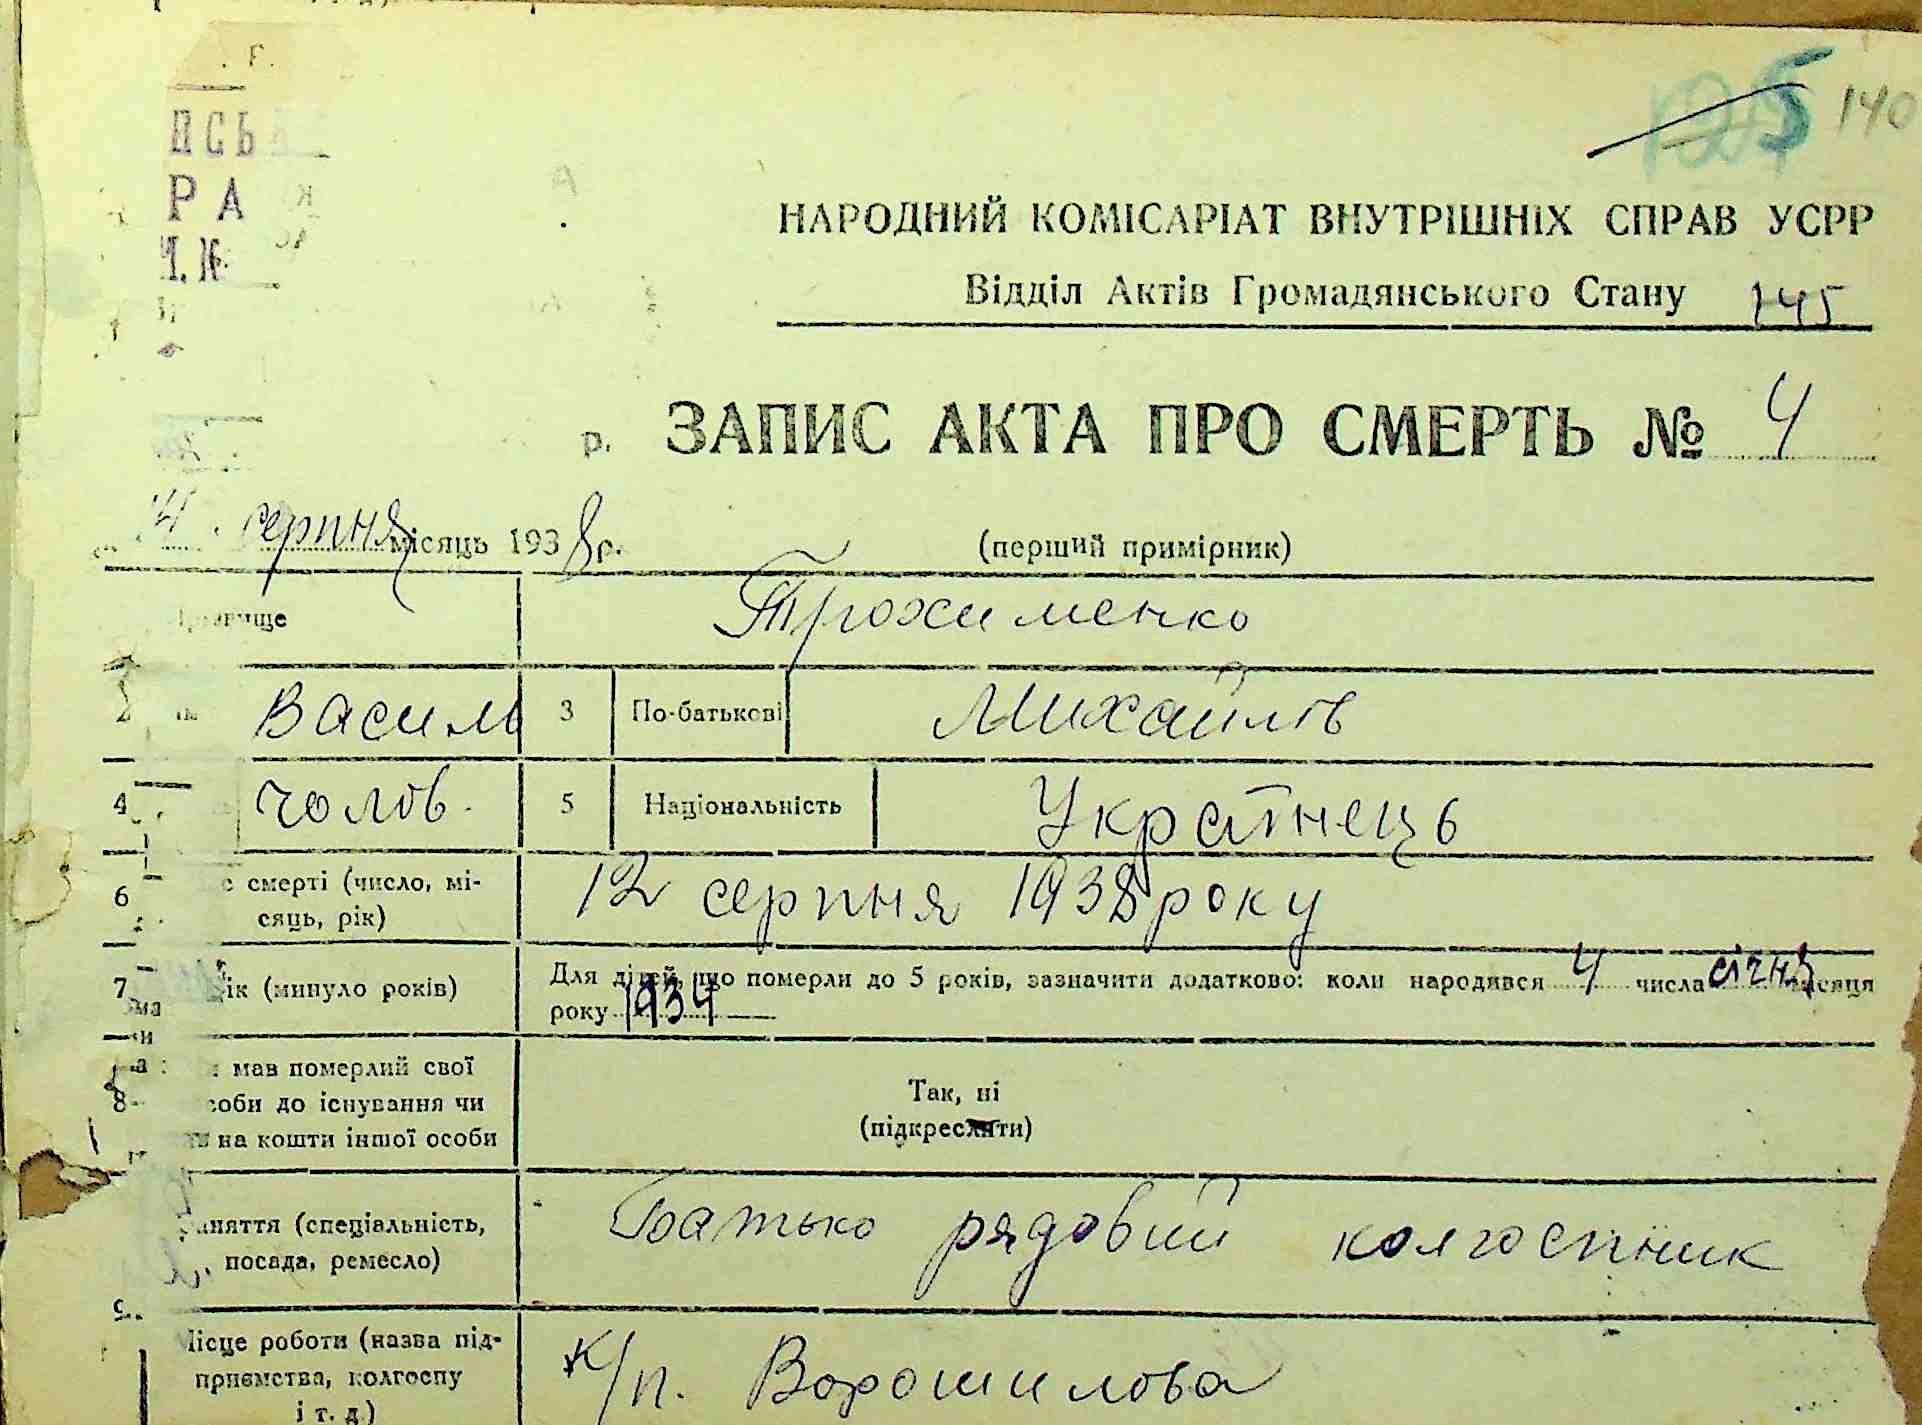 140
НАРОДНИЙ КОМІСАРІАТ ВНУТРІШНІХ СПРАВ УСРР
Відділ Актів Громадянського Стану 145
р. ЗАПИС АКТА ПРО СМЕРТЬ № 4
серпня місяць 1938 р. (перший примірник)
Трохименко
2 Васил 3 По-батькові Михайлов
4 чолов. 5 Національність Українець
6 смерті (число, мі-
сяць, рік) 12 серпня 1938 року
7 (минуло років) Для дітей, що померли до 5 років, зазначити додатково: коли народився 4 числа січня місяця
року 1934
мав померлий свої
8 особи до існування чи Так, ні
на кошти іншої особи (підкреслити)
заняття (спеціальність,
посада, ремесло) Батько рядовий колгоспник
9.
Місце роботи (назва під-
приємства, колгоспу К/п. Ворошилова
і т. д.)